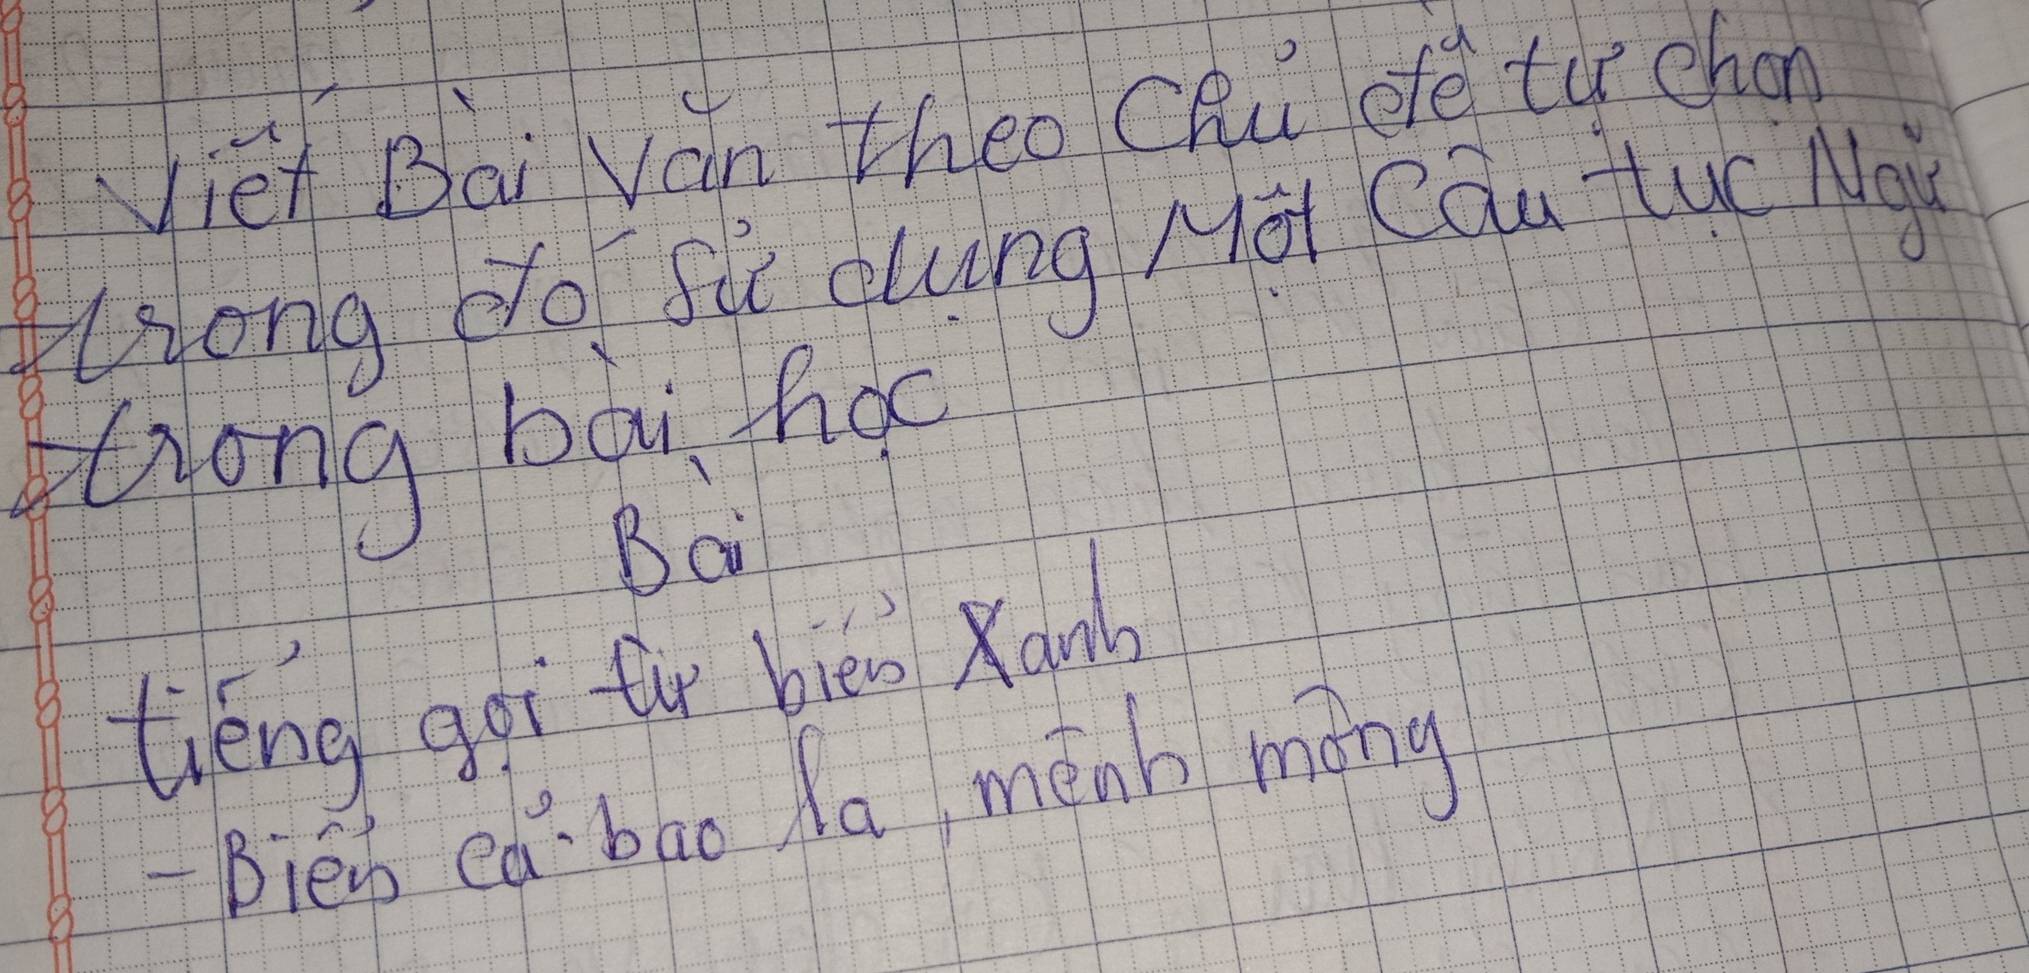 Viết Bài Văn theo Chủ đề tự chọn
trong đó sử dụng Một Câu tục Ngữ
trong bài học
Bài
tiếng gọi từ biển Xanh
- Biển cả bao la, mênh mông